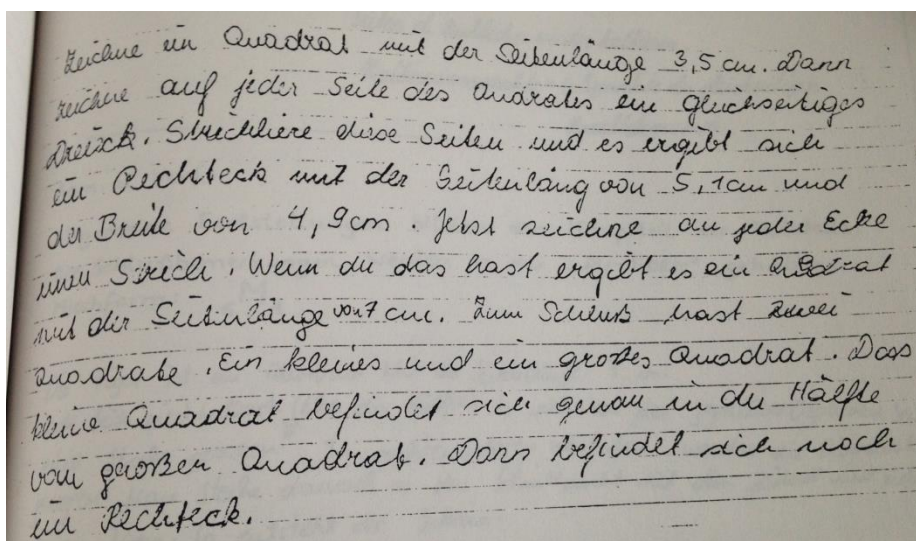 Zeichne ein Quadrat mit der Seitenlänge 3,5 cm. Dann
zeichne auf jeder Seite des Quadrates ein gleichseitiges
Dreieck. Strichliere diese Seiten und es ergibt sich
ein Rechteck mit der Seitenläng von 5,1cm und
der Breite von 4,9cm. Jetzt zeichne an jeder Ecke
einen Strich. Wenn du das hast ergibt es ein Quadrat
mit der Seitenlänge von 7 cm. Zum Schluß hast zwei
Quadrate. Ein kleines und ein großes Quadrat. Dass
kleine Quadrat befindet sich genau in der Hälfte
vom großen Quadrat. Dann befindet sich noch
ein Rechteck.